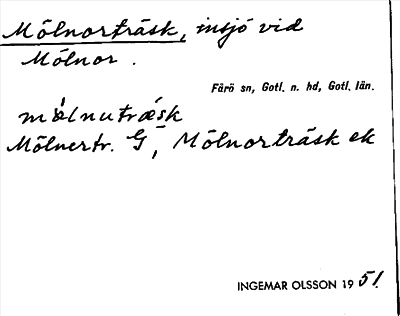 Mölnorträsk, insjö vid
Mölnor.
Fårö sn, Gotl. n. hd, Gotl. län.
mölnutræsk
Mölnertr. G, Mölnorträsk ek
INGEMAR OLSSON 1951.